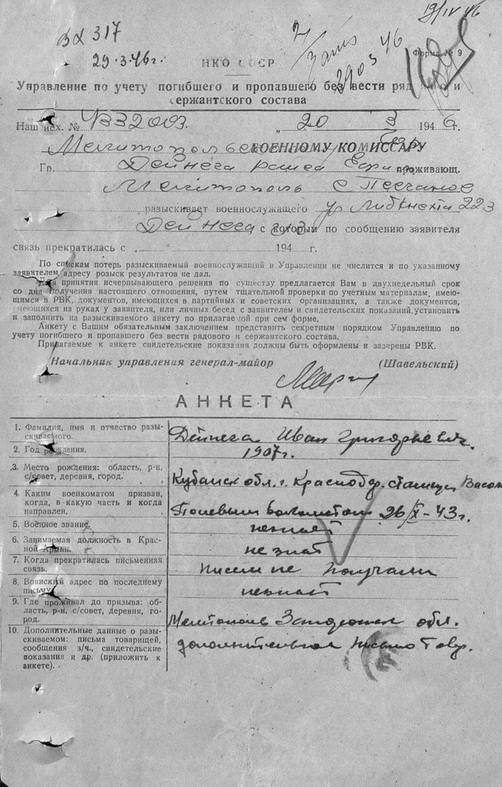 вх 317
29.3.46г.
19/IV 46
Форма № 9
НКО СССР
Управление по учету погибшего и пропавшего без вести ряд и
сержантского состава
Наш исх. № „20" 3 1946 г.
Мелитопольск ВОЕННОМУ КОМИССАРУ
Гр. Дейнега проживающ.
Мелитополь с Песчаное
разыскивает военнослужащего ул Либкнехта 223
Дейнега с которым по сообщению заявителя
связь прекратилась с „ " 194 г.
По спискам потерь разыскиваемый военнослужащий в Управлении не числится и по указанному
заявителем адресу розыск результатов не дал.
Для принятия исчерпывающего решения по существу предлагается Вам в двухнедельный срок
со дня получения настоящего отношения, путем тщательной проверки по учетным материалам, имею-
щимся в РВК, документов, имеющихся в партийных и советских организациях, а также документов,
имеющихся на руках у заявителя, или личных бесед с заявителем и свидетельских показаний, установить
и заполнить на разыскиваемого анкету по прилагаемой при сем форме.
Анкету с Вашим обязательным заключением представить секретным порядком Управлению по
учету погибшего и пропавшего без вести рядового и сержантского состава.
Прилагаемые к анкете свидетельские показания должны быть оформлены и заверены РВК.
Начальник управления генерал-майор (Шавельский)
АНКЕТА
1. Фамилия, имя и отчество разы-
скиваемого. Дейнега Иван Григорьевич
2. Год рождения. 1907г.
3. Место рождения: область, р-н,
с/совет, деревня, город. Кубанск обл. г. Краснодр. станиция
4. Каким военкоматом призван,
когда, в какую часть и когда
направлен. Полевым 26/X-43г.
5. Военное звание. незнает
6. Занимаемая должность в Крас-
ной Армии. не знат
7. Когда прекратилась письменная
связь. писем не получали
8. Воинский адрес по последнему
письму. незнает
9. Где проживал до призыва: об-
ласть, р-н, с/совет, деревня, го-
род. Мелитополь Запорожск обл.
10. Дополнительные данные о разы-
скиваемом: письма товарищей,
сообщения з/ч., свидетельские
показания и др. (приложить к
анкете). дополнительное письмо Тов.